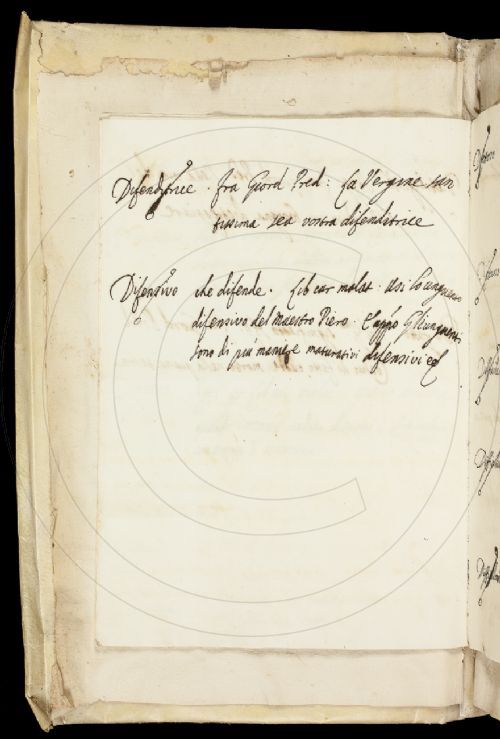 Difenditrice. fra Giord Pred: La Vergine san
tissima sea vostra difenditrice
Difensivo che difende. Lib cur malat. usi lo unguento
difensivo del Maestro Piero. E appº Gli unguenti
sono di più maniere maturativi difensivi ec